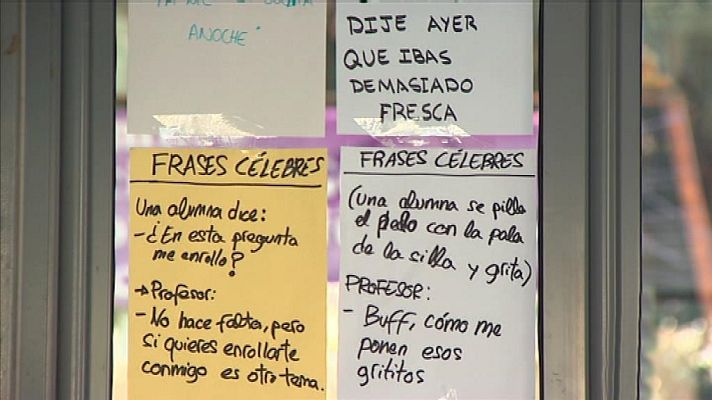 ANOCHE"
DIJE AYER
QUE IBAS
DEMASIADO
FRESCA
FRASES CÉLEBRES
Una alumna dice:
- ¿En esta pregunta
me enrollo?
→ Profesor:
- No hace falta, pero
si quieres enrollarte
conmigo es otro tema.
FRASES CÉLEBRES
(Una alumna se pilla
el pelo con la pata
de la silla y grita)
PROFESOR:
- Buff, cómo me
ponen esos
grititos